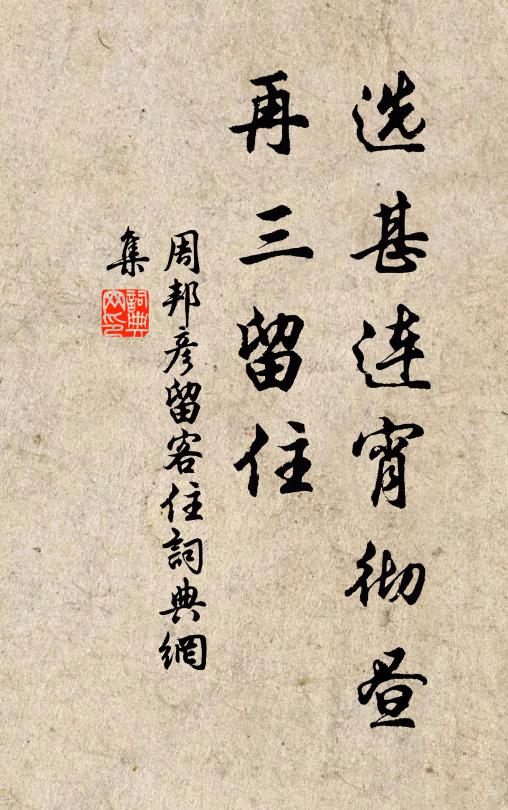 选甚连宵彻昼
再三留住
周邦彦留客住詞典網
集
詞典網印